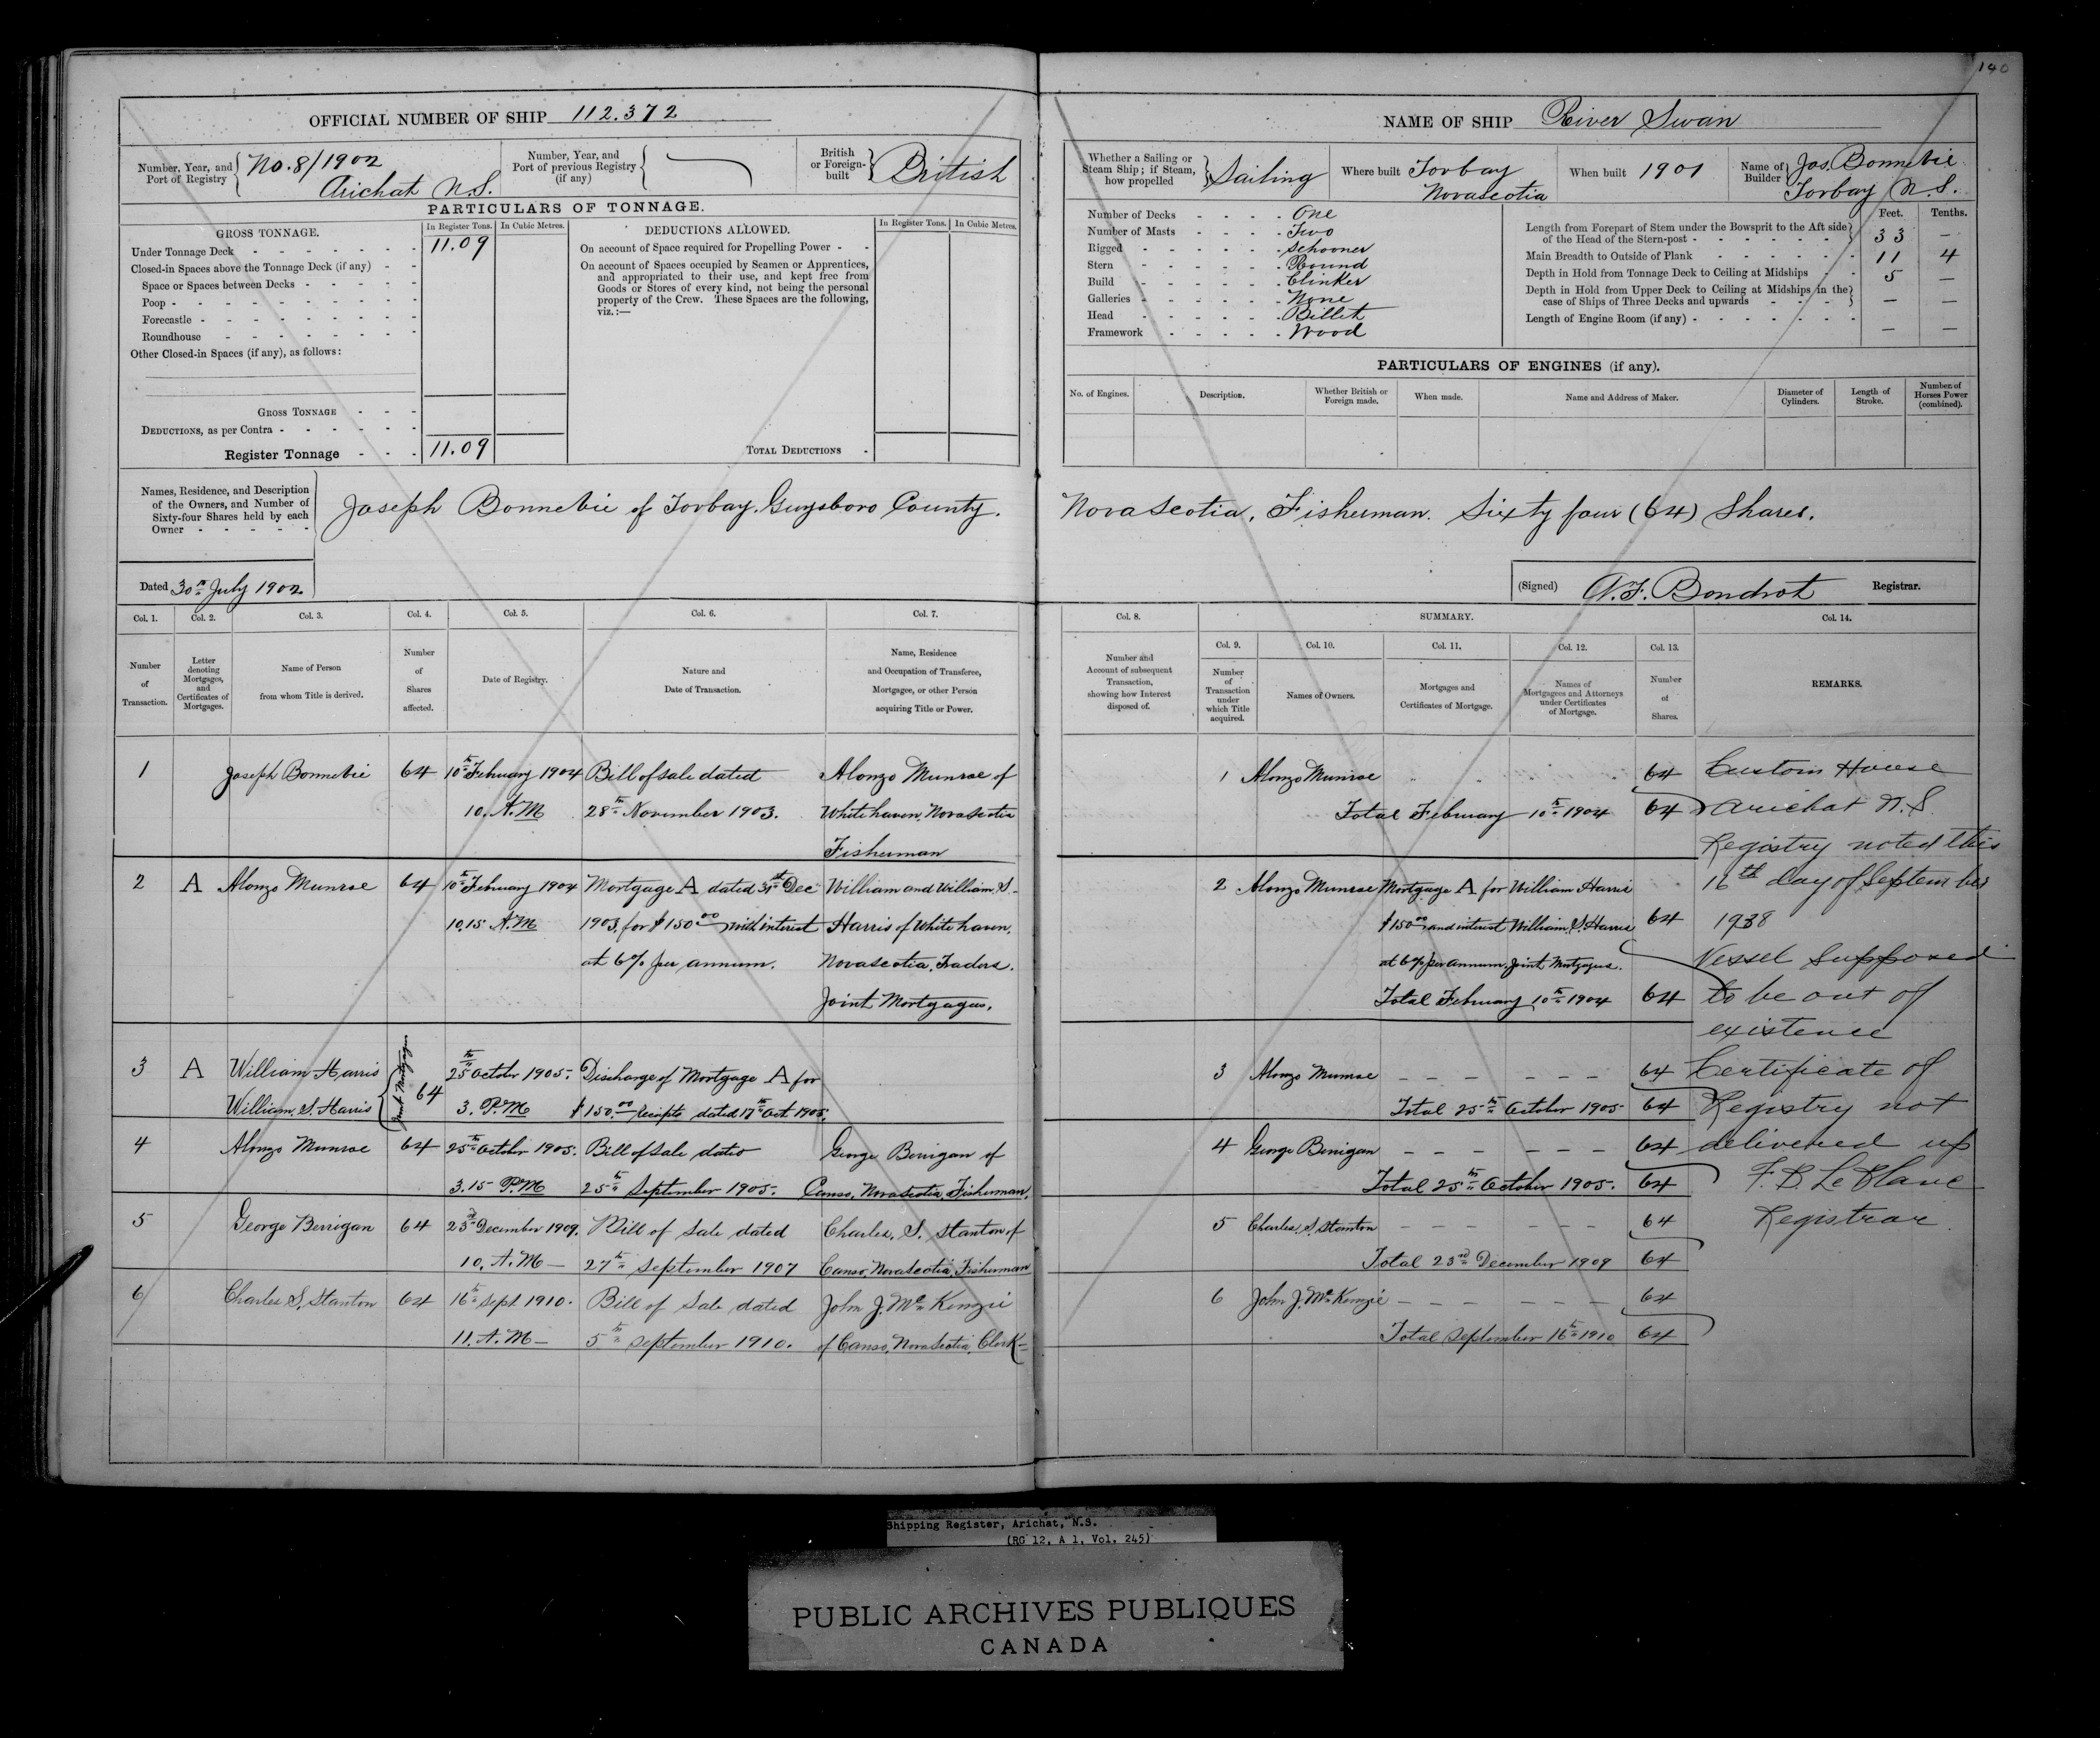 140
OFFICIAL NUMBER OF SHIP 112.372
Number, Year, and Port of Registry No. 8/1902 Arichat N.S.
Number, Year, and Port of previous Registry (if any)
British or Foreign-built British
PARTICULARS OF TONNAGE.
GROSS TONNAGE. In Register Tons. In Cubic Metres. DEDUCTIONS ALLOWED. In Register Tons. In Cubic Metres.
Under Tonnage Deck 11.09
Closed-in Spaces above the Tonnage Deck (if any)
Space or Spaces between Decks
Poop
Forecastle
Roundhouse
Other Closed-in Spaces (if any), as follows:
GROSS TONNAGE
DEDUCTIONS, as per Contra
Register Tonnage 11.09
On account of Space required for Propelling Power
On account of Spaces occupied by Seamen or Apprentices,
and appropriated to their use, and kept free from
Goods or Stores of every kind, not being the personal
property of the Crew. These Spaces are the following,
viz.:—
TOTAL DEDUCTIONS
NAME OF SHIP River Swan
Whether a Sailing or Steam Ship; if Steam, how propelled Sailing
Where built Torbay Novascotia
When built 1901
Name of Builder Jos. Bonnevie Torbay N.S.
Number of Decks One
Number of Masts Two
Rigged Schooner
Stern Round
Build Clinker
Galleries None
Head Billet
Framework Wood
Feet. Tenths.
Length from Forepart of Stem under the Bowsprit to the Aft side
of the Head of the Stern-post 33 —
Main Breadth to Outside of Plank 11 4
Depth in Hold from Tonnage Deck to Ceiling at Midships 5 —
Depth in Hold from Upper Deck to Ceiling at Midships in the
case of Ships of Three Decks and upwards — —
Length of Engine Room (if any) — —
PARTICULARS OF ENGINES (if any).
No. of Engines. Description. Whether British or Foreign made. When made. Name and Address of Maker. Diameter of Cylinders. Length of Stroke. Number of Horses Power (combined).
Names, Residence, and Description
of the Owners, and Number of
Sixty-four Shares held by each
Owner
Joseph Bonnevie of Torbay. Guysboro County. Nova Scotia. Fisherman. Sixty four (64) Shares.
Dated 30th July 1902
(Signed) A.F. Bondrot Registrar.
Col. 1. Col. 2. Col. 3. Col. 4. Col. 5. Col. 6. Col. 7.
Number of Transaction.
Letter denoting Mortgages, and Certificates of Mortgages.
Name of Person from whom Title is derived.
Number of Shares affected.
Date of Registry.
Nature and Date of Transaction.
Name, Residence and Occupation of Transferee, Mortgagee, or other Person acquiring Title or Power.
1 Joseph Bonnevie 64 10th February 1904 Bill of sale dated Alonzo Munroe of
10. A.M 28th November 1903. Whitehaven, Novascotia
Fisherman
2 A Alonzo Munroe 64 10th February 1904 Mortgage A dated 31st Dec William and William. S.
10.15 A.M 1903, for $150.00 with interest Harris of White haven.
at 6% per annum. Novascotia, Traders.
Joint Mortgagees.
3 A William Harris 64 25th October 1905. Discharge of Mortgage A for
William. S. Harris Joint Mortgagees 3. P.M $150.00 Receipts dated 17th Oct 1905.
4 Alonzo Munroe 64 25th October 1905. Bill of Sale dated George Berrigan of
3.15 P.M 25th September 1905. Canso, Nova Scotia, Fisherman.
5 George Berrigan 64 23rd December 1909. Bill of Sale dated Charles. S. Stanton of
10. A.M — 27th September 1907 Canso, Nova Scotia, Fisherman
6 Charles S. Stanton 64 16th Sept 1910. Bill of Sale dated John J. McKenzie
11. A.M — 5th September 1910. of Canso, Nova Scotia, Clerk
Col. 8. SUMMARY. Col. 14.
Col. 9. Col. 10. Col. 11. Col. 12. Col. 13.
Number and Account of subsequent Transaction, showing how Interest disposed of.
Number of Transaction under which Title acquired.
Names of Owners.
Mortgages and Certificates of Mortgage.
Names of Mortgagees and Attorneys under Certificates of Mortgage.
Number of Shares.
REMARKS.
1 Alonzo Munroe 64
Total February 10th 1904 64
2 Alonzo Munroe Mortgage A for William Harris
$150.00 and interest William. S. Harris 64
at 6% per annum. Joint Mortgagees.
Total February 10th 1904 64
3 Alonzo Munroe 64
Total 25th October 1905 64
4 George Berrigan 64
Total 25th October 1905. 64
5 Charles. S. Stanton 64
Total 23rd December 1909 64
6 John J. McKenzie 64
Total September 16th 1910 64
Custom House
Arichat N.S
Registry noted this
16th day of September
1938
Vessel Supposed
to be out of
existence
Certificate of
Registry not
delivered up
F. D. LeBlanc
Registrar
Shipping Register, Arichat, N.S.
(RG 12, A 1, Vol. 245)
PUBLIC ARCHIVES PUBLIQUES
CANADA